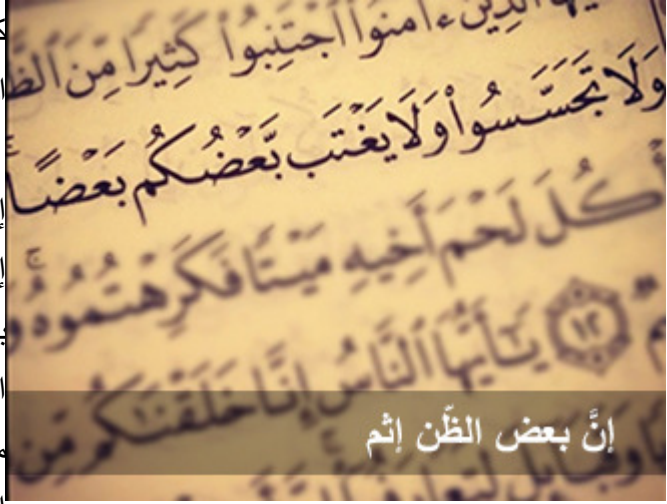 ٱلَّذِينَ ءَامَنُوا۟ ٱجْتَنِبُوا۟ كَثِيرًا مِّنَ ٱلظَّ
وَلَا تَجَسَّسُوا۟ وَلَا يَغْتَب بَّعْضُكُم بَعْضًا
أْكُلَ لَحْمَ أَخِيهِ مَيْتًا فَكَرِهْتُمُوهُ ۚ وَ
١٢ يَـٰٓأَيُّهَا ٱلنَّاسُ إِنَّا خَلَقْنَـٰكُم مِّن
وَقَبَآئِلَ لِتَعَارَفُ
إنَّ بعض الظّن إثم